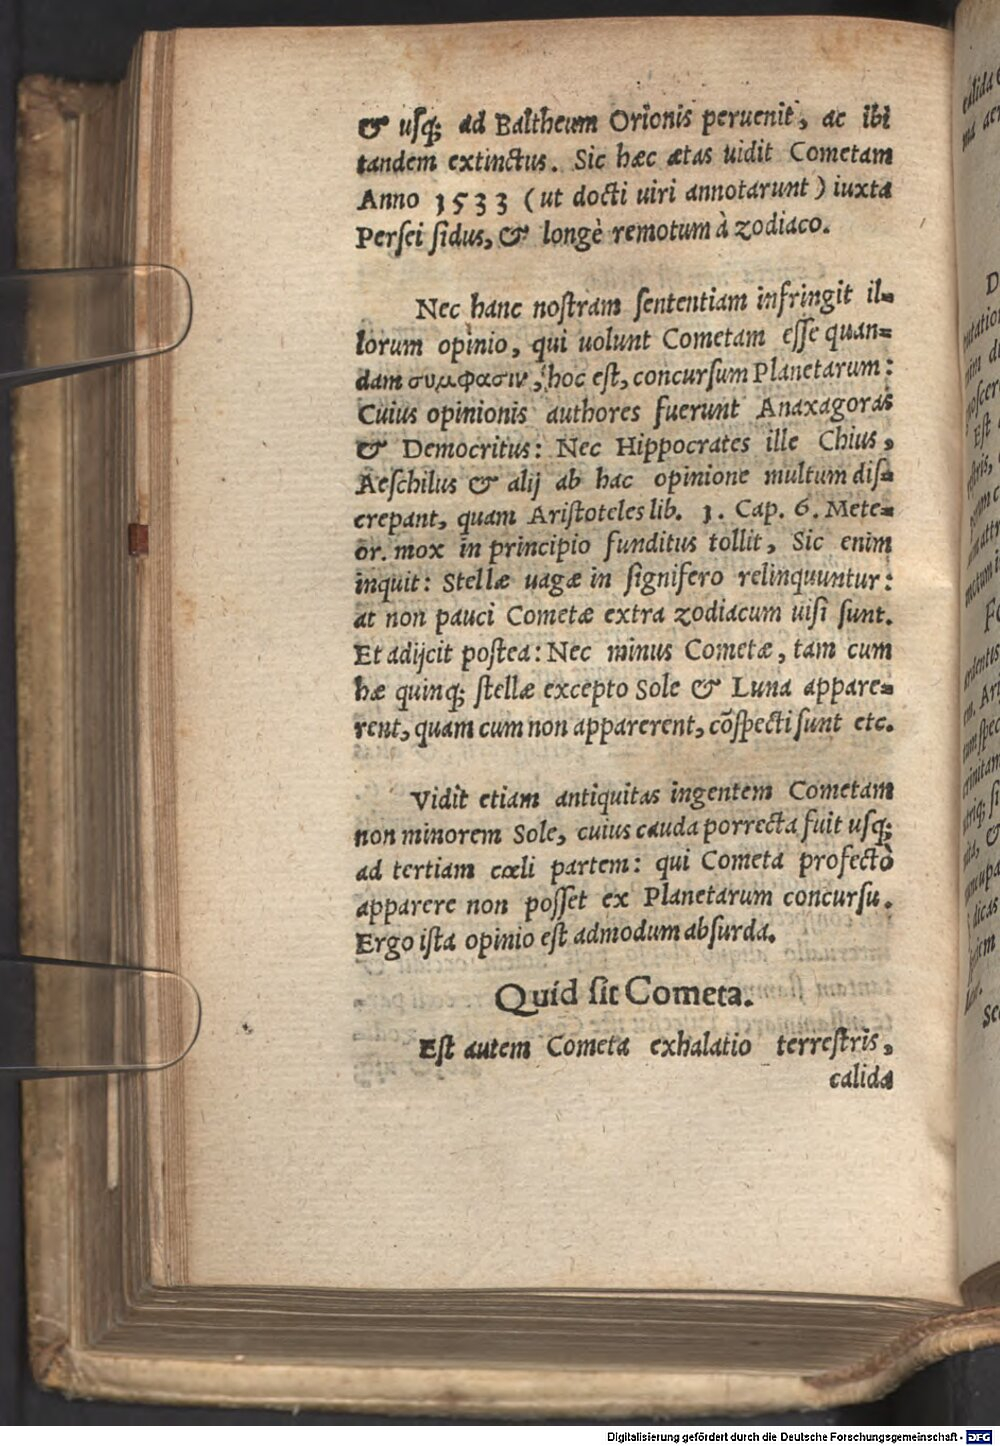 & uſq; ad Baltheum Orionis peruenit, ac ibi
tandem extinctus. Sic hæc ætas uidit Cometam
Anno 1533 (ut docti uiri annotarunt) iuxta
Perſei ſidus, & longè remotum à zodiaco.
Nec hanc noſtram ſententiam infringit il-
lorum opinio, qui uolunt Cometam eſſe quan-
dam συμφασιν, hoc eſt, concurſum Planetarum:
Cuius opinionis authores fuerunt Anaxagoras
& Democritus: Nec Hippocrates ille Chius,
Aeſchilus & alij ab hac opinione multum diſ-
crepant, quam Ariſtoteles lib. 1. Cap. 6. Mete-
or. mox in principio funditus tollit, Sic enim
inquit: Stellæ uagæ in ſignifero relinquuntur:
at non pauci Cometæ extra zodiacum uiſi ſunt.
Et adijcit poſtea: Nec minus Cometæ, tam cum
hæ quinq; ſtellæ excepto Sole & Luna appare-
rent, quam cum non apparerent, cõſpecti ſunt etc.
Vidit etiam antiquitas ingentem Cometam
non minorem Sole, cuius cauda porrecta fuit uſq;
ad tertiam cœli partem: qui Cometa profectò
apparere non poſſet ex Planetarum concurſu.
Ergo iſta opinio eſt admodum abſurda.
Quid ſit Cometa.
Eſt autem Cometa exhalatio terreſtris,
calida
Digitalisierung gefördert durch die Deutsche Forschungsgemeinschaft - DFG